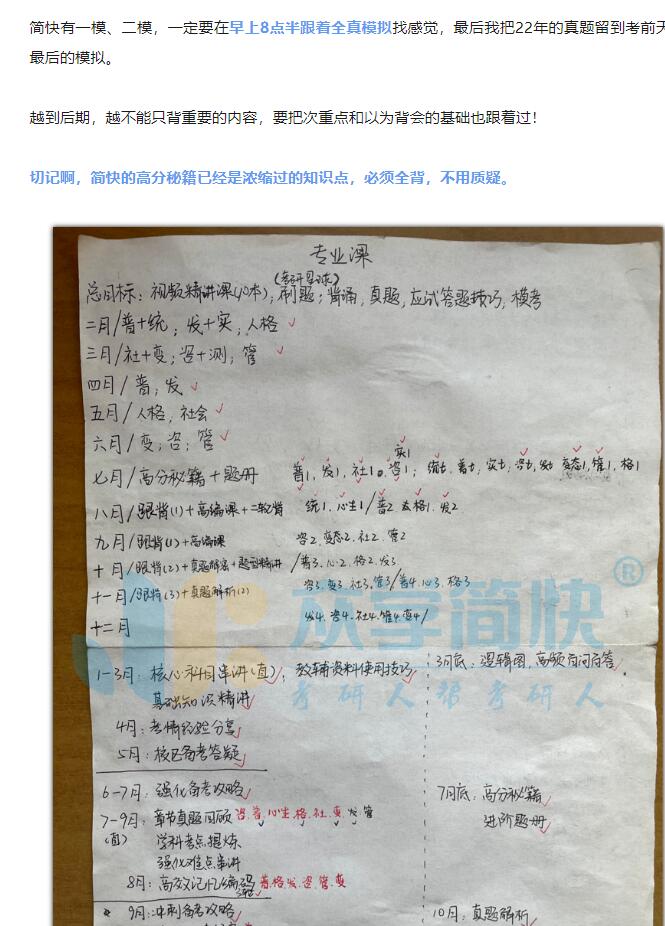 简快有一模、二模，一定要在早上8点半跟着全真模拟找感觉，最后我把22年的真题留到考前天
最后的模拟。
越到后期，越不能只背重要的内容，要把次重点和以为背会的基础也跟着过！
切记啊，简快的高分秘籍已经是浓缩过的知识点，必须全背，不用质疑。
专业课
(考研星球)
总目标：视频精讲课(10本)，刷题；背诵，真题，应试答题技巧，模考
二月/普+统；发+实；人格
三月/社+变；咨+测；管
四月/普；发
五月/人格，社会
六月/变；咨；管
实1
七月/高分秘籍+题册 普1，发1，社1，咨1；
八月/跟背(1)+高编课+二轮背 统1.心生1/普2 格1.发2
九月/跟背(1)+高编课 咨2.变态2.社2.管2
十月/跟背(2)+真题解密+题型精讲 /普3.心2.格2.发3
十一月/跟背(3)+真题解析(2) 咨3.变3.社3.管3/普4.心3.格3
十二月 发4.咨4.社4.管4.变4/
灰学简快®
考研人帮考研人
1-3月：核心科目串讲(直)；教辅资料使用技巧 3月底：逻辑图，高频百问百答
基础知识精讲
4月：考情经验分享
5月：核心备考答疑
6-7月：强化备考攻略 7月底：高分秘籍
7-9月：章节真题回顾 咨.普.心生.格.社.变.发.管 进阶题册
(直) 学科考点提炼
强化难点串讲
8月：高效记忆编码 普.格.发.咨.管.变
9月：冲刺备考攻略 10月：真题解析